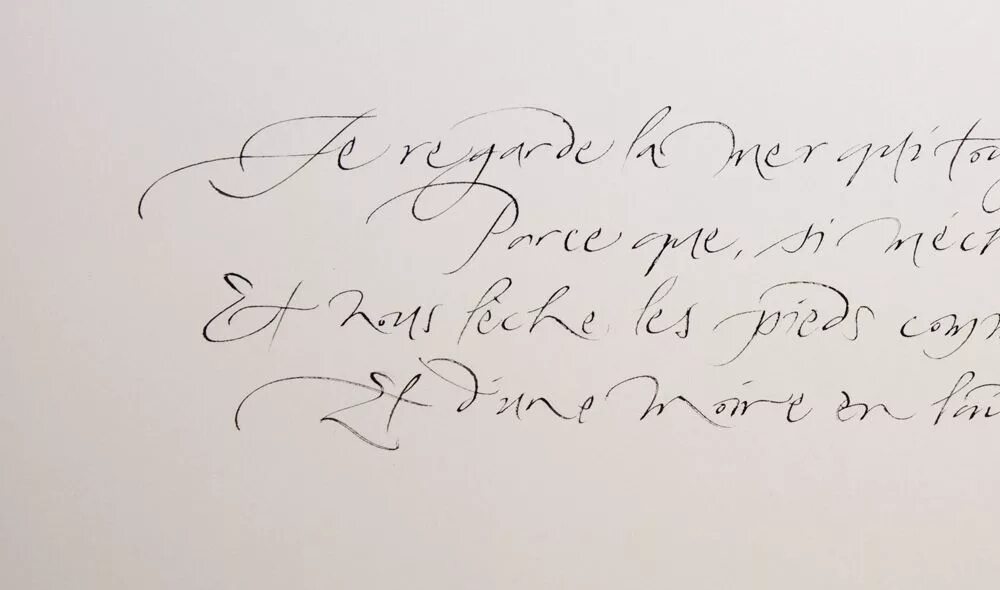 Je regarde la mer qui tou
Parce que, si méch
Et nous lèche les pieds comm
Et d'une moire en lai